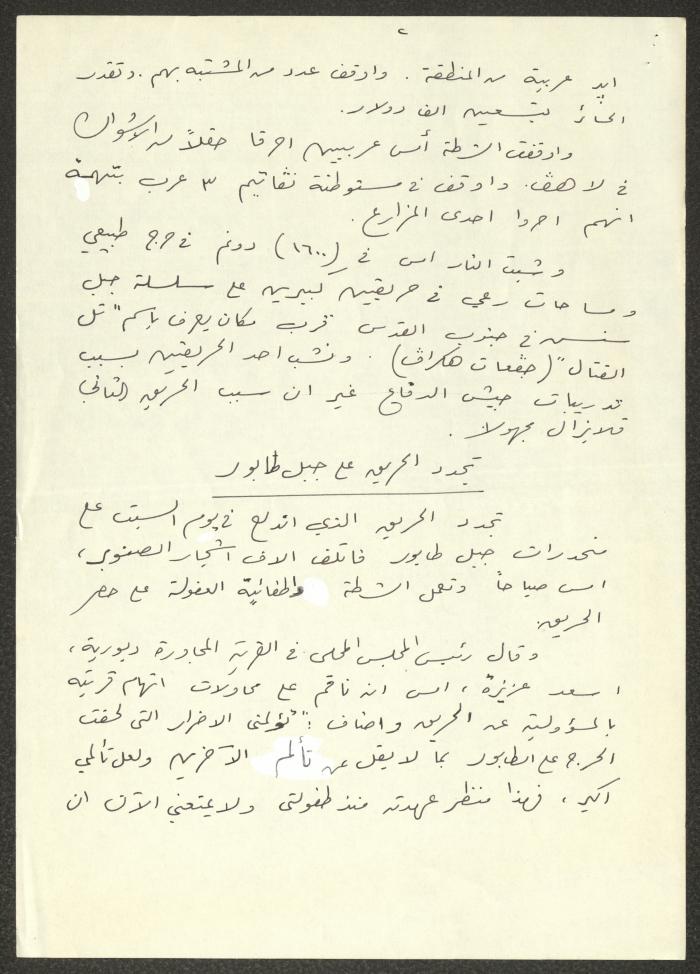 ٢
ايد عربية من المنطقة . واوقف عدد من المشتبه بهم . وتقدر
الخسائر بتسعين الف دولار .
واوقفت الشرطة أمس عربيين احرقا حقلاً من الاشواك
في لاهڤ . واوقف في مستوطنة نڤاتيم ٣ عرب بتهمة
انهم احرقوا احدى المزارع .
وشبت النار امس في (١٦٠٠) دونم في حرج طبيعي
ومساحات رعي في حريقين كبيرين على سلسلة جبل
في جنوب القدس قرب مكان يعرف باسم "تل
القتال" (جڤعات هكراڤ) . ونشب احد الحريقين بسبب
تدريبات جيش الدفاع غير ان سبب الحريق الثاني
فلا يزال مجهولا .
تجدد الحريق على جبل طابور
تجدد الحريق الذي اندلع في يوم السبت على
منحدرات جبل طابور فاتلف الاف اشجار الصنوبر ،
امس صباحاً وتعمل الشرطة واطفائية العفولة على حصر
الحريق .
وقال رئيس المجلس المحلي في القرية المجاورة دبورية ،
اسعد عزيزة ، امس انه ناقم على محاولات اتهام قريته
بالمسؤولية عن الحريق واضاف : "تؤلمني الاضرار التي لحقت
الحرج على الطابور بما لا يقل عن تألم الآخرين ولعل تألمي
اكبر ، فهذا منظر عهدته منذ طفولتي ولا يمتعني الآن ان